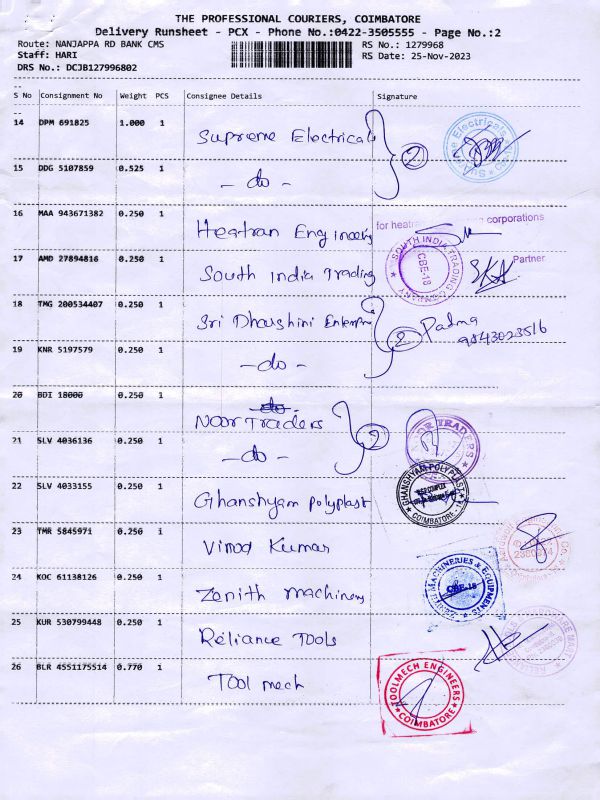 THE PROFESSIONAL COURIERS, COIMBATORE
Delivery Runsheet - PCX - Phone No.:0422-3505555 - Page No.:2
Route: NANJAPPA RD BANK CMS
RS No.: 1279968
Staff: HARI
RS Date: 25-Nov-2023
DRS No.: DCJB127996802
S No Consignment No Weight PCS Consignee Details Signature
14 DPM 691825 1.000 1 Supreme Electricals 2
15 DDG 5107859 0.525 1 - do -
16 MAA 943671382 0.250 1 Heatran Engineering
for heatra corporations
Partner
17 AMD 27894816 0.250 1 South India Trading
SOUTH INDIA TRADING COMPANY CBE-18
18 TMG 200534407 0.250 1 Sri Dharshini Enterprise 2 Padma
9843023516
19 KNR 5197579 0.250 1 - do -
20 BDI 18000 0.250 1 do Noor Traders 2
21 SLV 4036136 0.250 1 - do -
TRADERS
22 SLV 4033155 0.250 1 Ghanshyam polyplast
GHANSHYAM POLYPLAST COIMBATORE
23 TMR 5845971 0.250 1 Vinod Kumar
24 KOC 61138126 0.250 1 Zenith Machinery
MACHINERIES & EQUIPMENTS CBE-18
25 KUR 530799448 0.250 1 Reliance Tools
26 BLR 4551175514 0.770 1 Tool mech
TOOLMECH ENGINEERS COIMBATORE